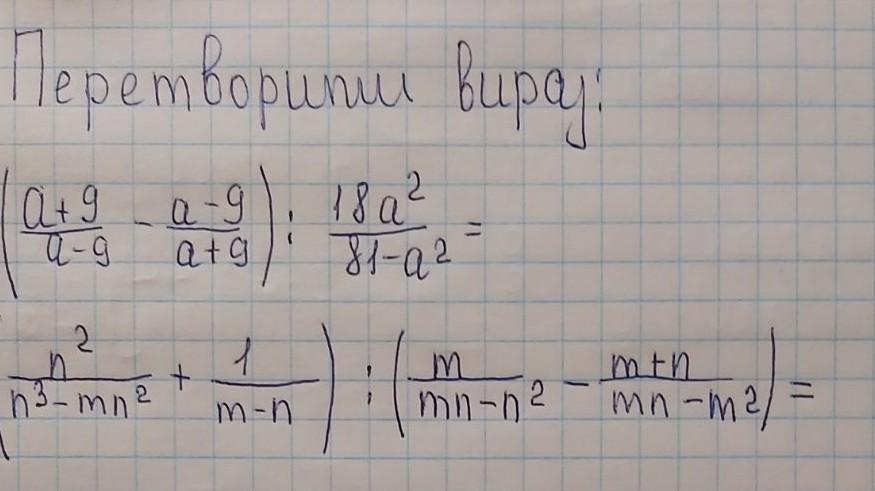 Перетворити вираз:
(a+9/a-9 - a-9/a+9) : 18a²/81-a² =
(n²/n³-mn² + 1/m-n) : (m/mn-n² - m+n/mn-m²) =